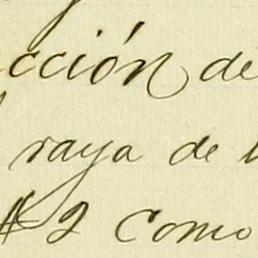 cción de
raya de l
#2 como